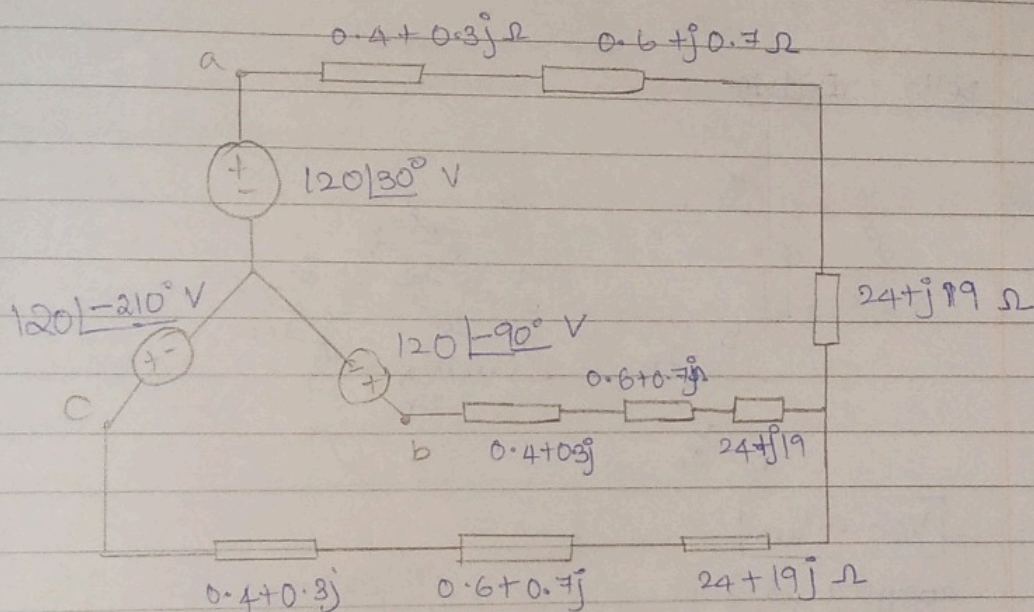 0.4 + 0.3j Ω 0.6 + j0.7 Ω
a
+
-
120∠30° V
120∠-210° V
+ -
120∠-90° V
-
+
24+j19 Ω
c
b
0.6+0.7j
0.4+03j
24+j19
0.4+0.3j
0.6+0.7j
24+19j Ω